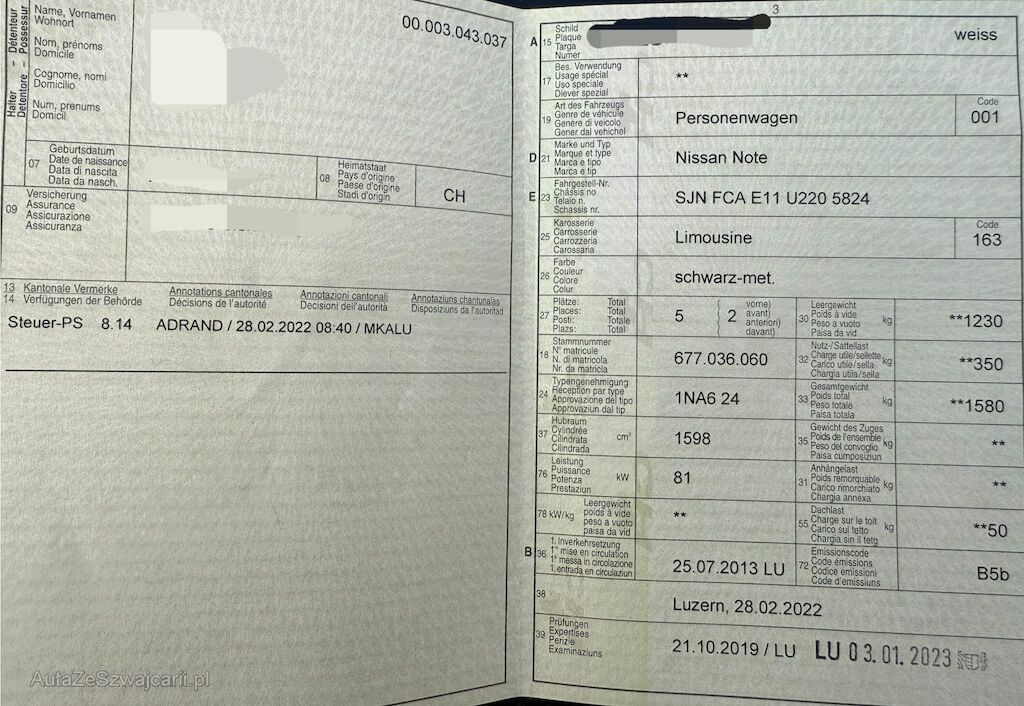 3
00.003.043.037
Halter – Détenteur
Detentore – Possessur
Name, Vornamen
Wohnort
Nom, prénoms
Domicile
Cognome, nomi
Domicilio
Num, prenums
Domicil
07
Geburtsdatum
Date de naissance
Data di nascita
Data da nasch.
08
Heimatstaat
Pays d'origine
Paese d'origine
Stadi d'origin
CH
09
Versicherung
Assurance
Assicurazione
Assicuranza
13 Kantonale Vermerke
14 Verfügungen der Behörde
Annotations cantonales
Décisions de l'autorité
Annotazioni cantonali
Decisioni dell'autorità
Annotaziuns chantunalas
Disposiziuns da l'autoritad
Steuer-PS 8.14 ADRAND / 28.02.2022 08:40 / MKALU
A 15
Schild
Plaque
Targa
Numer
weiss
17
Bes. Verwendung
Usage spécial
Uso speciale
Diever spezial
**
19
Art des Fahrzeugs
Genre de véhicule
Genere di veicolo
Gener dal vehichel
Personenwagen
Code
001
D 21
Marke und Typ
Marque et type
Marca e tipo
Marca e tip
Nissan Note
E 23
Fahrgestell-Nr.
Châssis no
Telaio n.
Schassis nr.
SJN FCA E11 U220 5824
25
Karosserie
Carrosserie
Carrozzeria
Carossaria
Limousine
Code
163
26
Farbe
Couleur
Colore
Colur
schwarz-met.
27
Plätze: Total
Places: Total
Posti: Totale
Plazs: Total
5
2
vorne)
avant)
anteriori)
davant)
30
Leergewicht
Poids à vide
Peso a vuoto
Paisa da vid
kg
**1230
18
Stammnummer
N° matricule
N. di matricola
Nr. da matricla
677.036.060
32
Nutz-/Sattellast
Charge utile/sellette
Carico utile/sella
Chargia utila/sella
kg
**350
24
Typengenehmigung
Réception par type
Approvazione del tipo
Approvaziun dal tip
1NA6 24
33
Gesamtgewicht
Poids total
Peso totale
Paisa totala
kg
**1580
37
Hubraum
Cylindrée
Cilindrata
Cilindrada
cm³
1598
35
Gewicht des Zuges
Poids de l'ensemble
Peso del convoglio
Paisa cumposiziun
kg
**
76
Leistung
Puissance
Potenza
Prestaziun
kW
81
31
Anhängelast
Poids remorquable
Carico rimorchiato
Chargia annexa
kg
**
78 kW/kg
Leergewicht
poids à vide
peso a vuoto
paisa da vid
**
55
Dachlast
Charge sur le toit
Carico sul tetto
Chargia sin il tetg
kg
**50
B 36
1. Inverkehrsetzung
1re mise en circulation
1a messa in circolazione
1. entrada en circulaziun
25.07.2013 LU
72
Emissionscode
Code émissions
Codice emissioni
Code d'emissiuns
B5b
38
Luzern, 28.02.2022
39
Prüfungen
Expertises
Perizie
Examinaziuns
21.10.2019 / LU
LU 03.01.2023
AutaZeSzwajcarii.pl